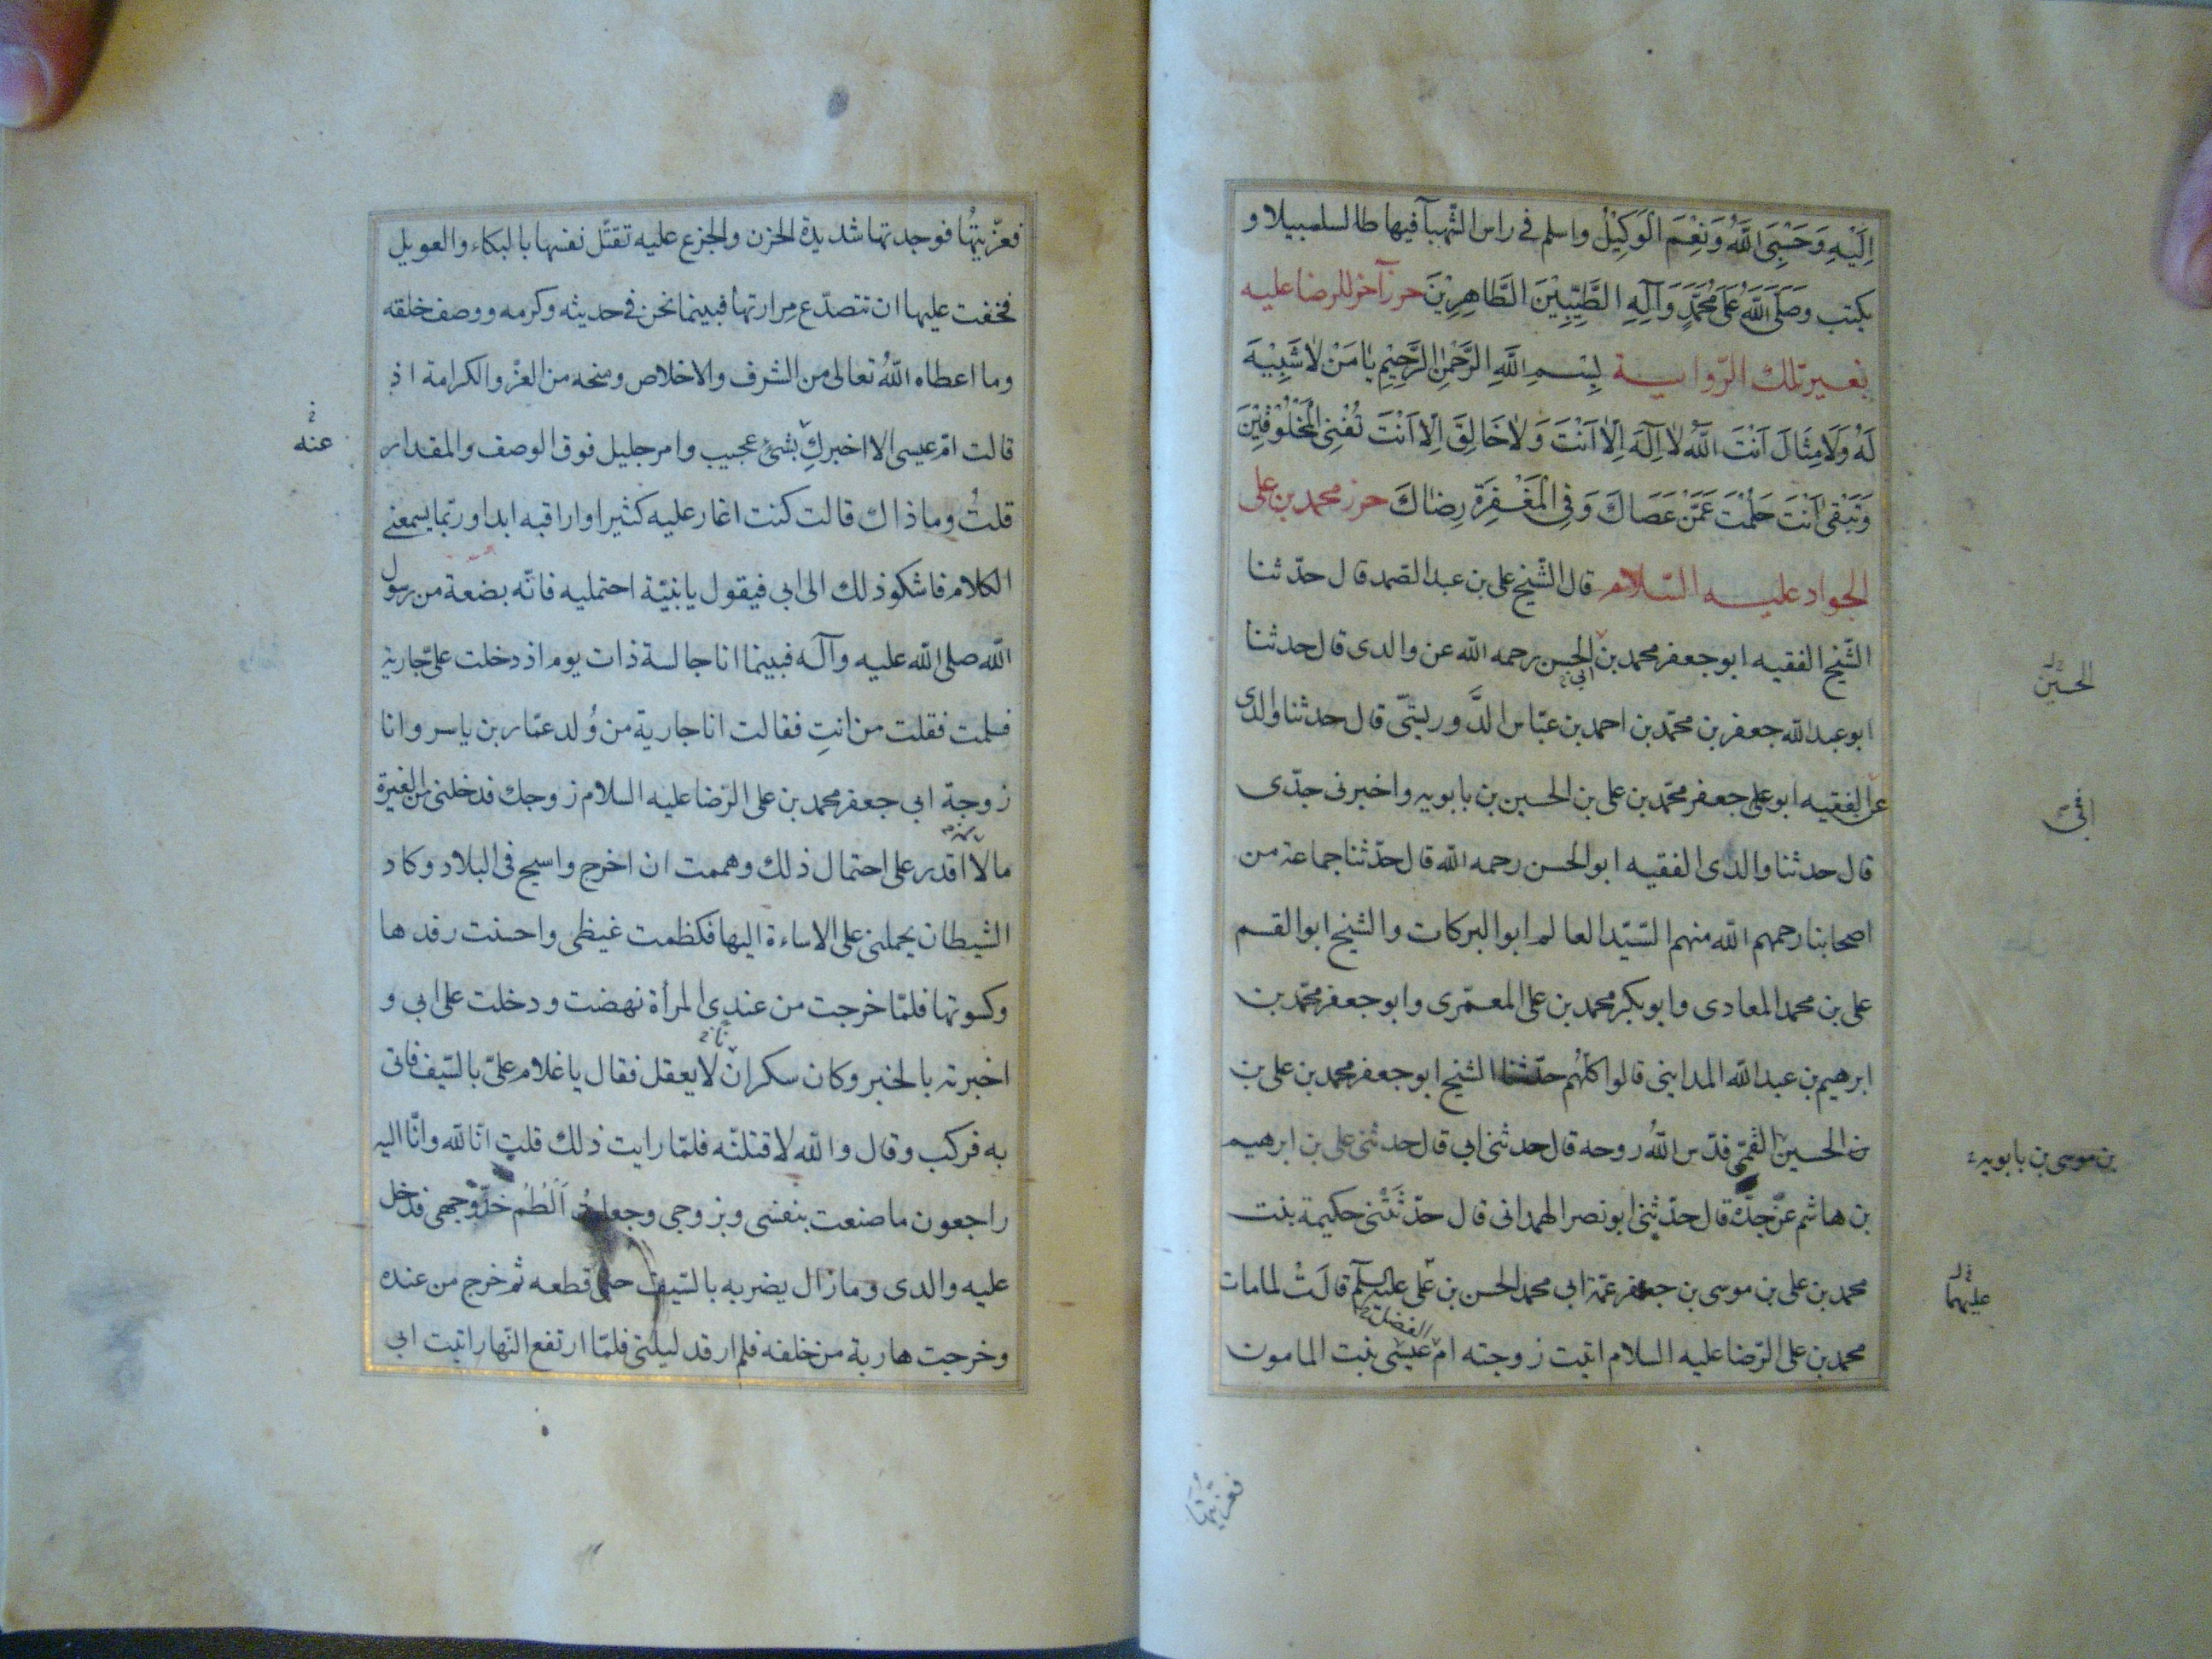 اِلَيْهِ وَحَسْبِيَ اللَّهُ وَنِعْمَ الْوَكِيْلُ واسلم فى راس الشهبآ فيها طالسلسبيلا و
يكتب وَصَلَّى اللَّهُ عَلَى مُحَمَّدٍ وَآلِهِ الطَّيِّبِيْنَ الطَّاهِرِيْنَ حرز آخر للرضا عليه
بغير تلك الرواية بِسْمِ اللَّهِ الرَّحْمٰنِ الرَّحِيْمِ يَا مَنْ لَا شَبِيْهَ
لَهُ وَلَا مِثَالَ اَنْتَ اللَّهُ لَا اِلٰهَ اِلَّا اَنْتَ وَلَا خَالِقَ اِلَّا اَنْتَ تُفْنِي الْمَخْلُوْقِيْنَ
وَتَبْقَى اَنْتَ حَلُمْتَ عَمَّنْ عَصَاكَ وَفِي الْمَغْفِرَةِ رِضَاكَ حرز محمد بن على
الجواد عليه السلام قال الشيخ على بن عبد الصمد قال حدثنا
الشيخ الفقيه ابو جعفر محمد بن ابى الحسن رحمه الله عن والدى قال حدثنا
الحسين
ابو عبد الله جعفر بن محمد بن احمد بن عباس الدوريستى قال حدثنا والدى
عن الفقيه ابو على جعفر محمد بن على بن الحسين بن بابويه واخبرنى جدى
قال حدثنا والدى الفقيه ابو الحسن رحمه الله قال حدثنا جماعة من
اصحابنا رحمهم الله منهم السيد العالم ابو البركات والشيخ ابو القسم
على بن محمد المعادى وابو بكر محمد بن على المعمرى وابو جعفر محمد بن
ابرهيم بن عبد الله المداينى قالوا كلهم حدثنا الشيخ ابو جعفر محمد بن على بن
بن الحسين القمى قدس الله روحه قال حدثنى ابى قال حدثنى على بن ابرهيم
بن موسى بن بابويه
بن هاشم عن جده قال حدثنى ابو نصر الهمدانى قال حدثَتْنى حكيمة بنت
محمد بن على بن موسى بن جعفر عمة ابى محمد الحسن بن على عليه السلم قالَتْ لما مات
عليهما
محمد بن على الرضا عليه السلام اتيت زوجته ام عيسى بنت المامون
الفضل
فعزيتها
فعزّيتها فوجدتها شديدة الحزن والجزع عليه تقتّل نفسها بالبكاء والعويل
فخفت عليها ان تتصدّع مرارتها فبينما نحن فى حديثه وكرمه ووصف خلقه
وما اعطاه اللهُ تعالى من الشرف والاخلاص ومنحه من العزّ والكرامة اذ
قالت امّ عيسى الا اخبركِ بشئ عجيب وامر جليل فوق الوصف والمقدار
عنه
قلتُ وما ذاك قالت كنت اغار عليه كثيرا واراقبه ابدا وربّما يسمعنى
الكلام فاشكو ذلك الى ابى فيقول يا بنيّة احتمليه فانّه بضعة من رسول
الله صلى الله عليه وآله فبينما انا جالسة ذات يوم اذ دخلت علىّ جارية
فسلمت فقلت من انتِ فقالت انا جارية من وُلد عمّار بن ياسر وانا
زوجة ابى جعفر محمد بن على الرّضا عليه السلام زوجك فدخلنى من الغيرة
ما لا اقدر على احتمال ذلك وهممت ان اخرج واسيح فى البلاد وكاد
الشيطان يحملنى على الاساءة اليها فكظمت غيظى واحسنت رفدها
وكسوتها فلمّا خرجت من عندى المرأة نهضت ودخلت على ابى و
اخبرته بالخبر وكان سكران لا يعقل فقال يا غلام علىّ بالسّيف فاتى
به فركب وقال والله لاقتلنّه فلمّا رايت ذلك قلت انّا لله وانّا اليه
راجعون ما صنعت بنفسى وبزوجى وجعلت اَلْطُمُ خدّ وجهى فدخل
عليه والدى وما زال يضربه بالسّيف حتى قطعه ثم خرج من عنده
وخرجت هاربة من خلفه فلم ارقد ليلتى فلمّا ارتفع النّهار اتيت ابى